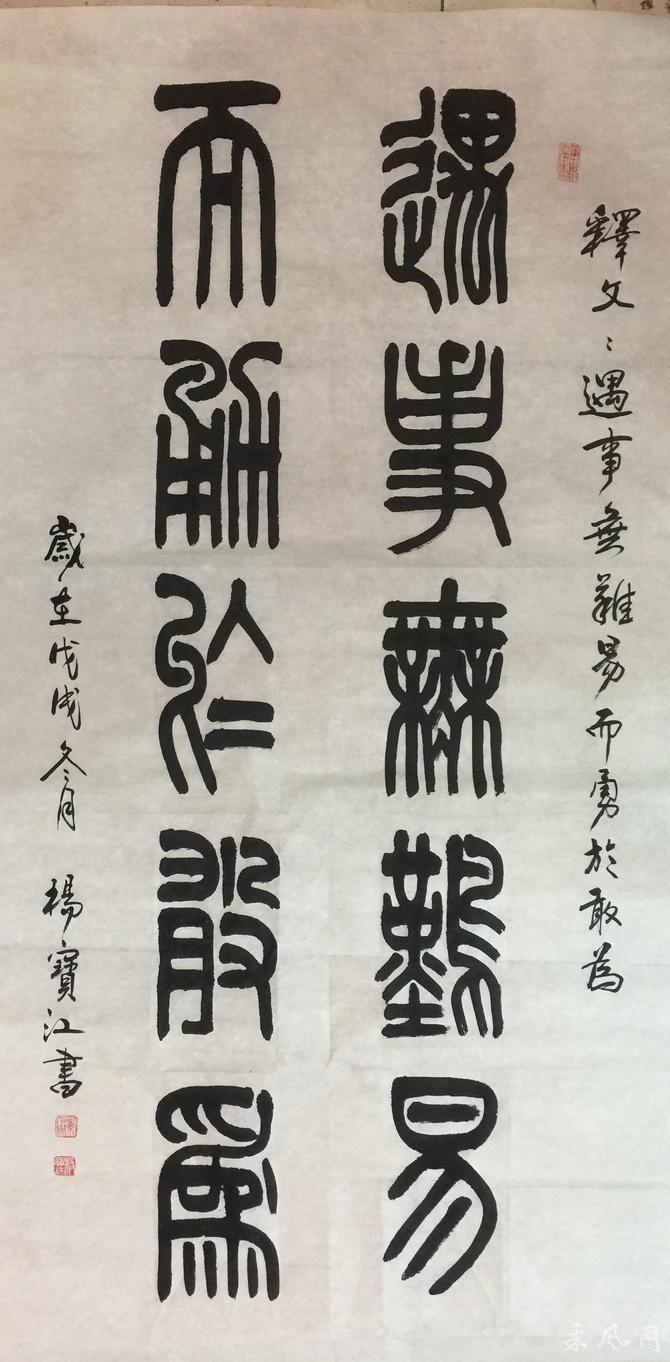 釋文：遇事無難易而勇於敢為
遇事無難易
而勇於敢為
歲在戊戌冬月 楊寶江書
采风网